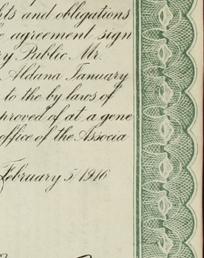 ts and obligations
e agreement sign
ry Public, Mr.
Aldana January
to the by laws of
proved of at a gene
office of the Associa
February 5, 1916